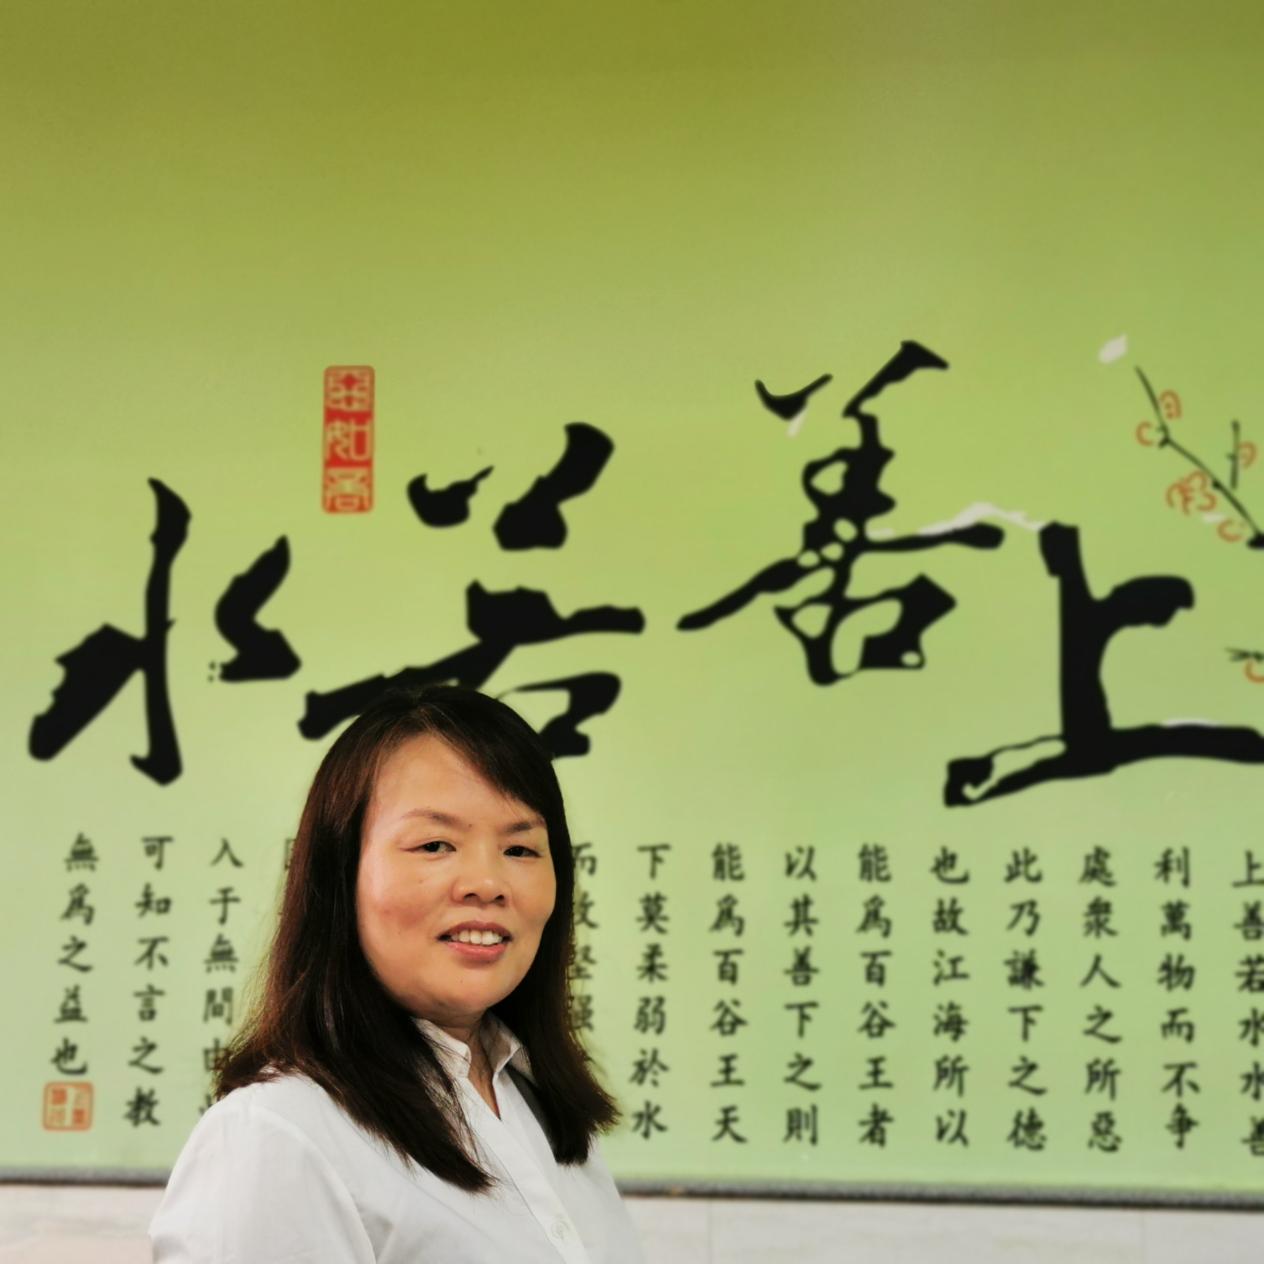 上善若水
上善若水水善
利萬物而不争
處衆人之所惡
此乃謙下之德
也故江海所以
能爲百谷王者
以其善下之則
能爲百谷王天
下莫柔弱於水
而攻堅强
入于無間由
可知不言之教
無爲之益也